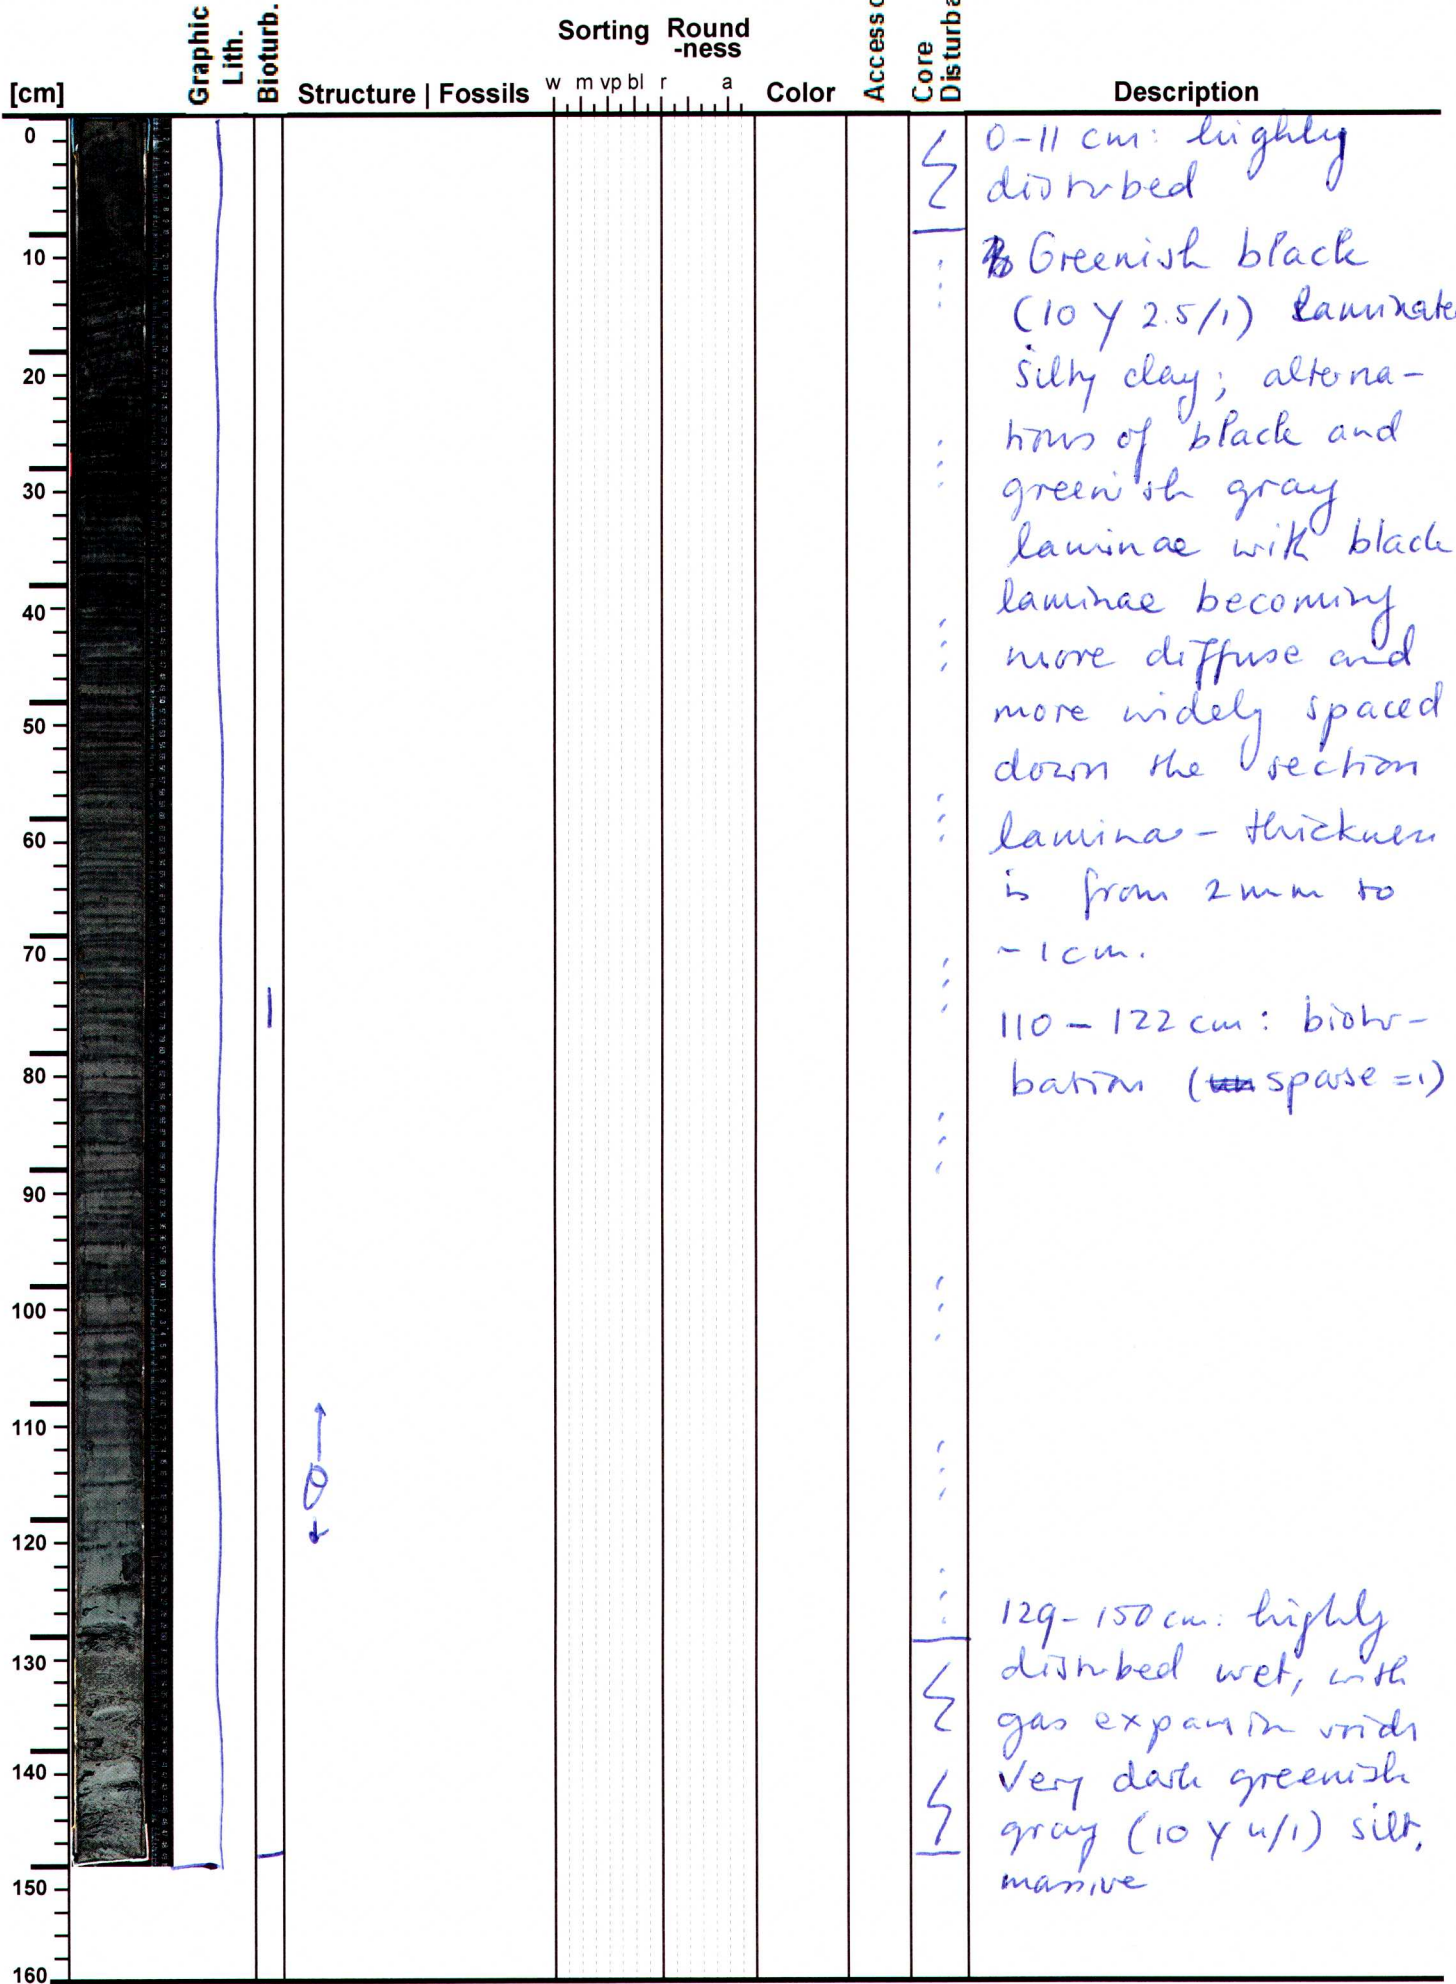 Graphic
Lith.
Bioturb.
Sorting Round
-ness
Core
Disturba
[cm] Structure | Fossils w m vp bl r a Color Description
0
10
20
30
40
50
60
70
80
90
100
110
120
130
140
150
160
0-11 cm: highly
disturbed
Greenish black
(10 Y 2.5/1) laminate
silty clay; alterna-
tions of black and
greenish gray
laminae with black
laminae becoming
more diffuse and
more widely spaced
down the section
lamina - thickness
is from 2mm to
~1cm.
110-122 cm: biotur-
bation (sparse =1)
129-150 cm: highly
disturbed wet, with
gas expansion voids
Very dark greenish
gray (10 Y 4/1) silt,
massive